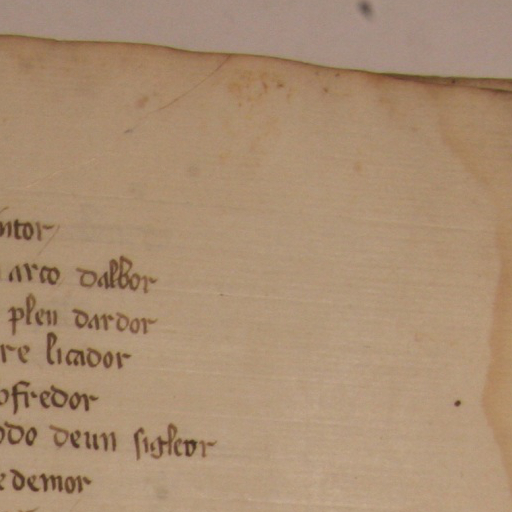 ntor
arco dalbor
plen dardor
re licador
ofredor
odo deun sigleor
edemor